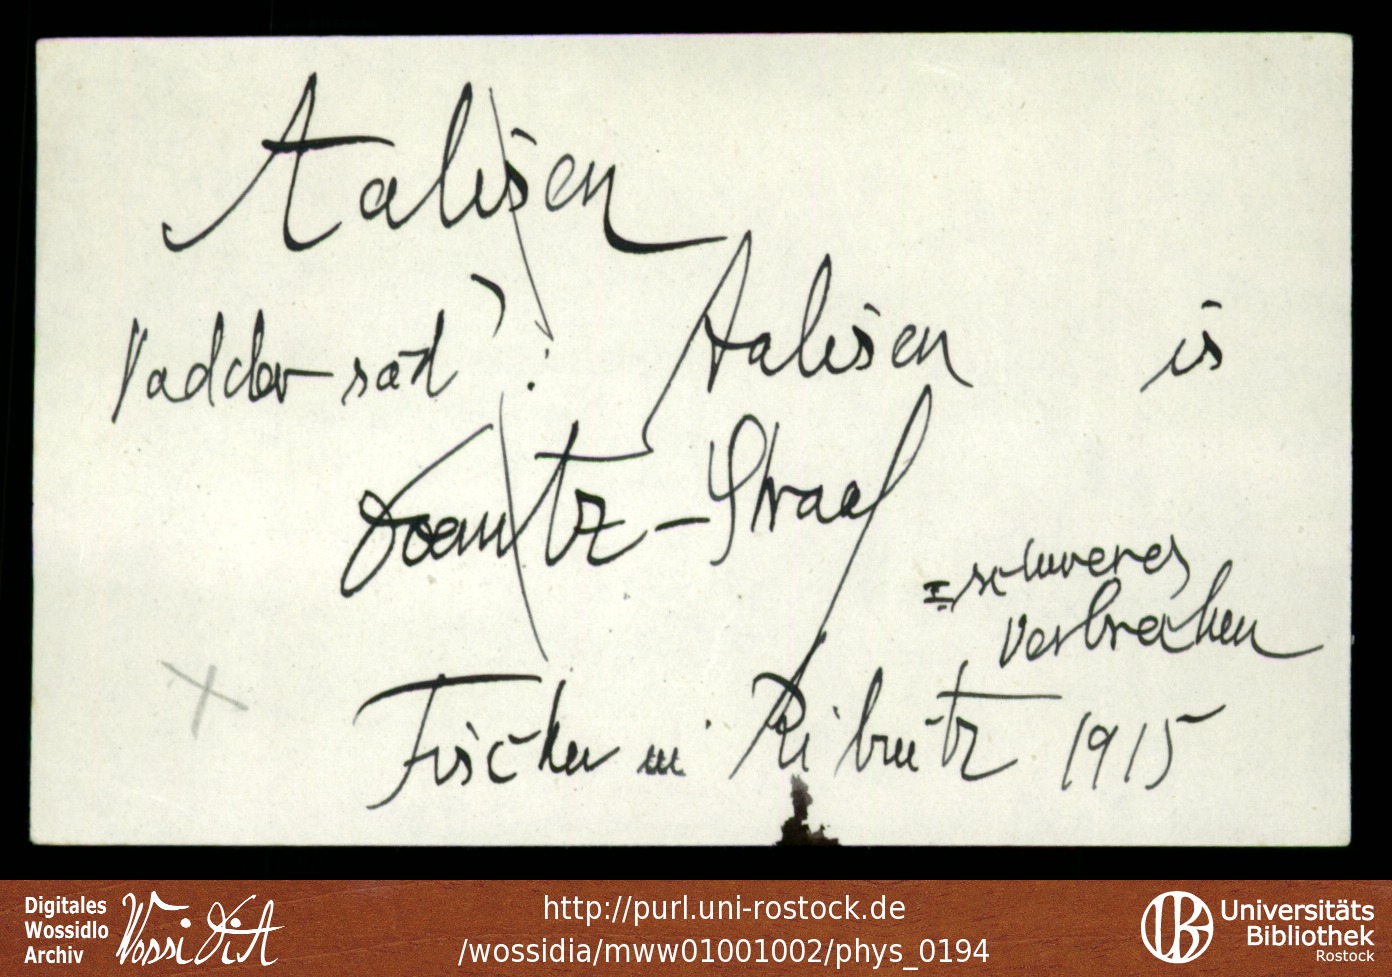 Aalisen
Vadder säd : Aalisen is
-Straaf
= schweres
Verbrechen
Fischer in Ribnitz 1915
Digitales
Wossidlo
Archiv
WossiDiA
http://purl.uni-rostock.de
/wossidia/mww01001002/phys_0194
UB
Universitäts
Bibliothek
Rostock